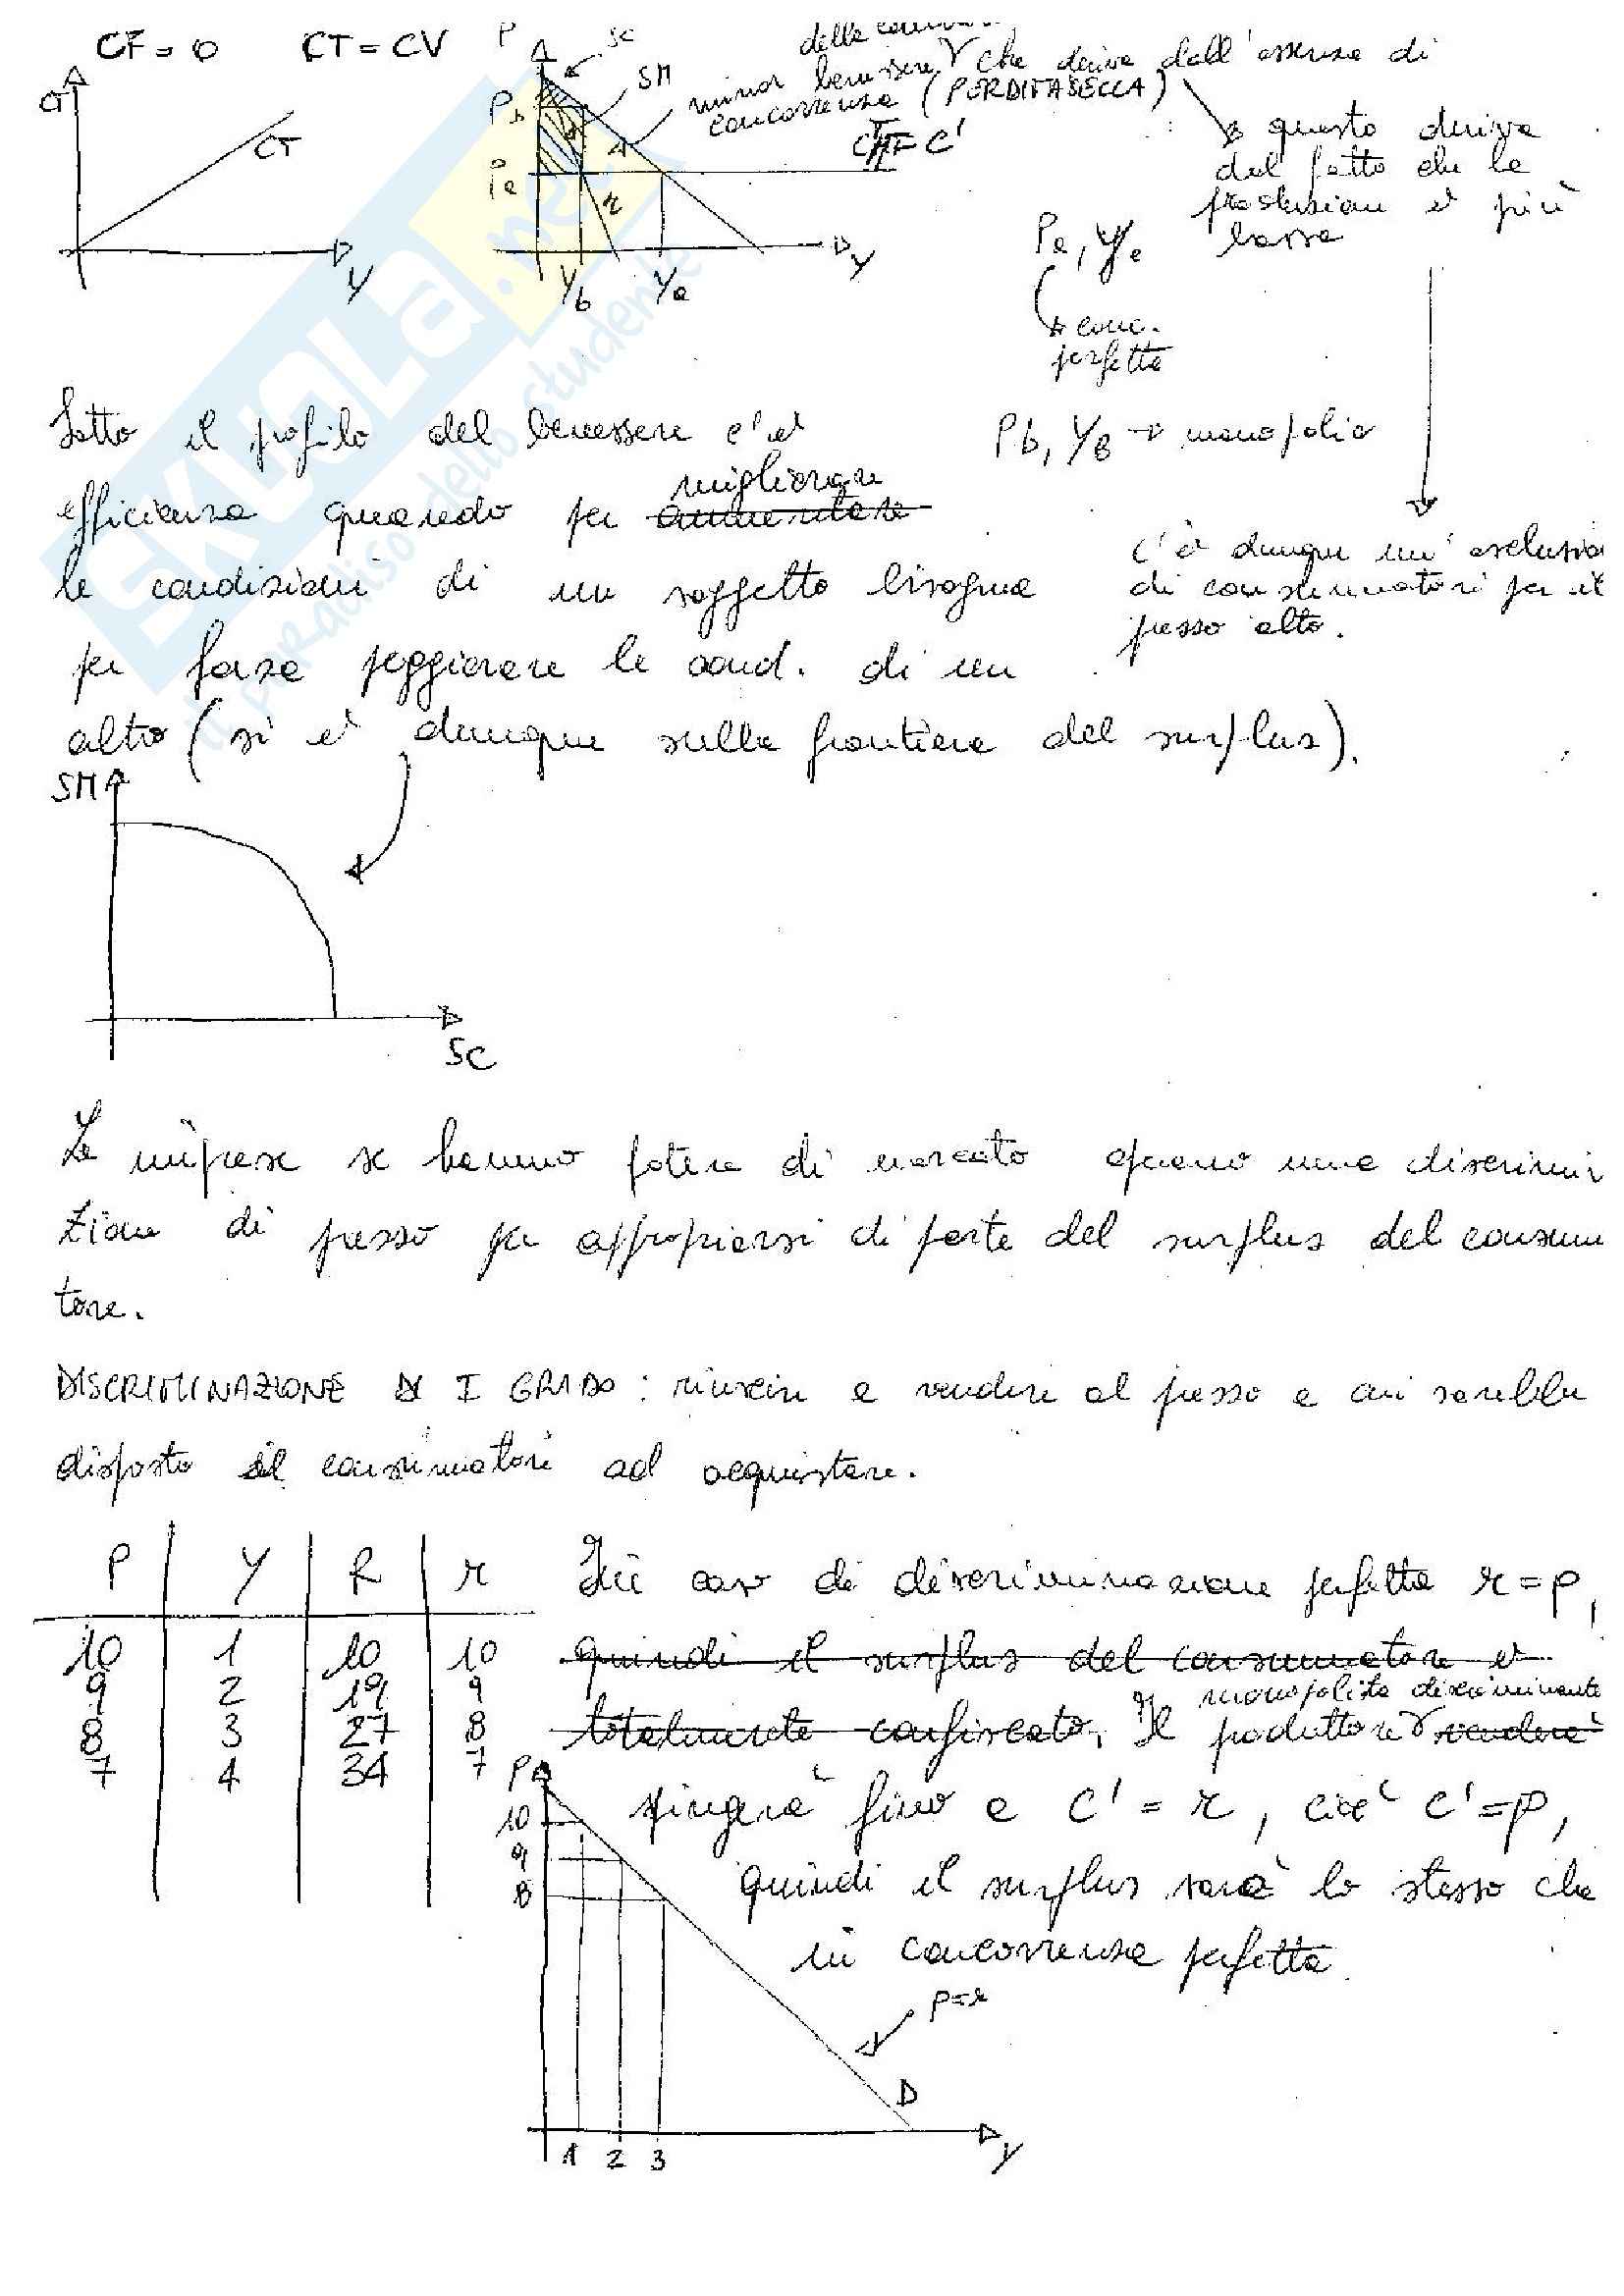 CF = 0 CT = CV
CT
CT
Y
P
SC
SM
Pb
Pa
A
r
Yb
Ya
Y
minor benessere che deriva dall'assenza di
concorrenza (PERDITA SECCA)
C'
questo deriva
dal fatto che la
produzione è più
bassa
Pa, Ya
conc.
perfetta
Pb, Yb → monopolio
c'è dunque un'esclusio
di consumatori per il
prezzo alto.
Sotto il profilo del benessere c'è
efficienza quando per aumentare migliorare
le condizioni di un soggetto bisogna
per forza peggiorare le cond. di un
altro (si è dunque sulla frontiera del surplus).
SM
SC
Le imprese se hanno potere di mercato operano una discrimin
zione di prezzo per appropiarsi di parte del surplus del consuma
tore.
DISCRIMINAZIONE DI I GRADO: riuscire a vendere al prezzo a cui sarebbe
disposto il consumatore ad acquistare.
P Y R r
10 1 10 10
9 2 19 9
8 3 27 8
7 4 34 7
In caso di discriminazione perfetta r = p,
quindi il surplus del consumatore è
totalmente confiscato. Il produttore monopolista discriminante venderà
spingerà fino a C' = r, cioè C' = p,
quindi il surplus sarà lo stesso che
in concorrenza perfetta
P
10
9
8
p=r
D
1 2 3
Y
SKUOLA.net
il paradiso dello studente